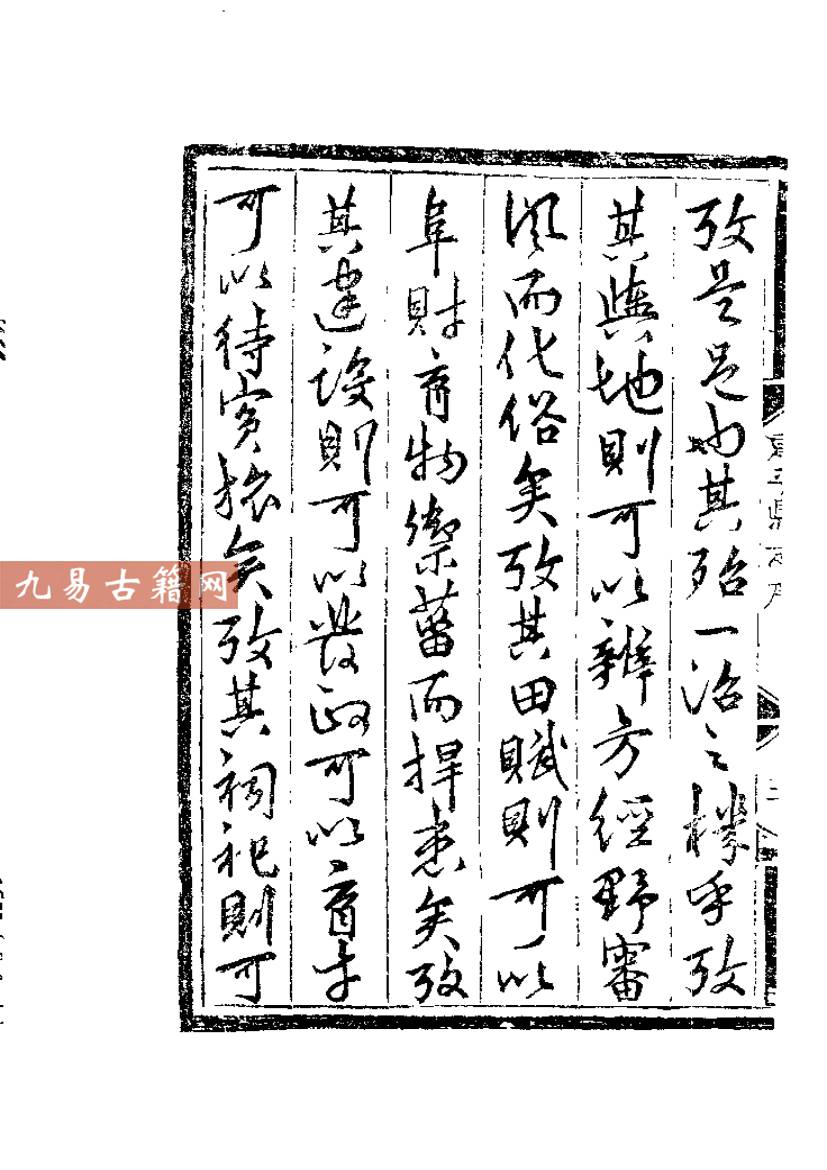 攷是邑也其殆一治之機乎攷
其輿地則可以辨方經野審
風而化俗矣攷其田賦則可以
阜財育物禦菑而捍患矣攷
其建設則可以發政可以育才
可以待賓旅矣攷其祠祀則可
九易古籍网